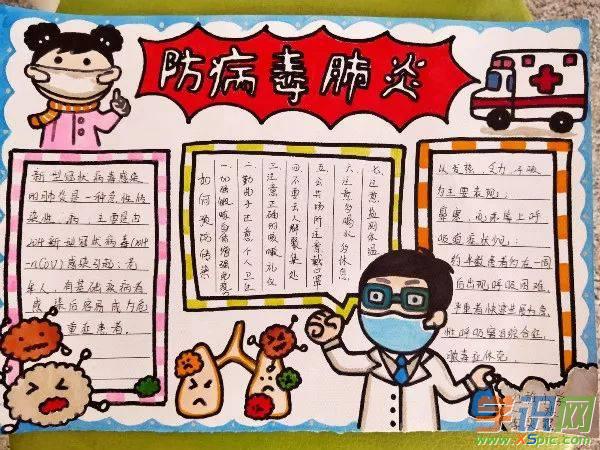 防病毒肺炎
新型冠状病毒感染
的肺炎是一种急性传
染性 病 主要是由
2019新型冠状病毒(2019
-nCOV)感染引起;老
年人、有基础疾病者
感染后容易成为危
重症患者。
如何预防传染
一.加强锻炼身体增强免疫
二.勤洗手注意个人卫生
三.注意正确的咳嗽礼仪
四.不要去人群聚集处
五.公共场所注意戴口罩
六.注意多喝水多休息
七.注意监测体温
以发热 乏力 干咳
为主要表现;
鼻塞,流涕等上呼
吸道症状少见;
约半数患者约在一周
后出现呼吸困难,
严重者快速进展为急
性呼吸窘迫综合征,
脓毒症休克
学识网
www.XSpic.com